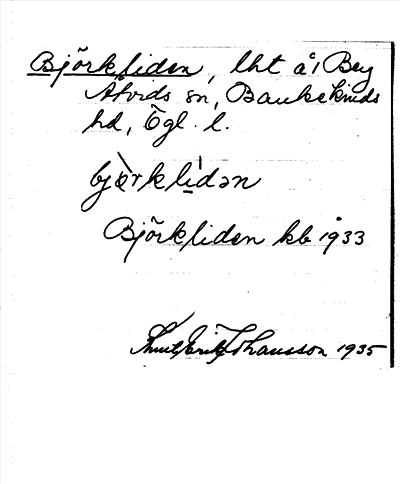 Björkliden, lht å 1 Berg
Åtvids sn, Bankekinds
hd, Ögl. l.
bjæ̀rklìdən
Björkliden kb 1933
Knut Erik Johansson 1935